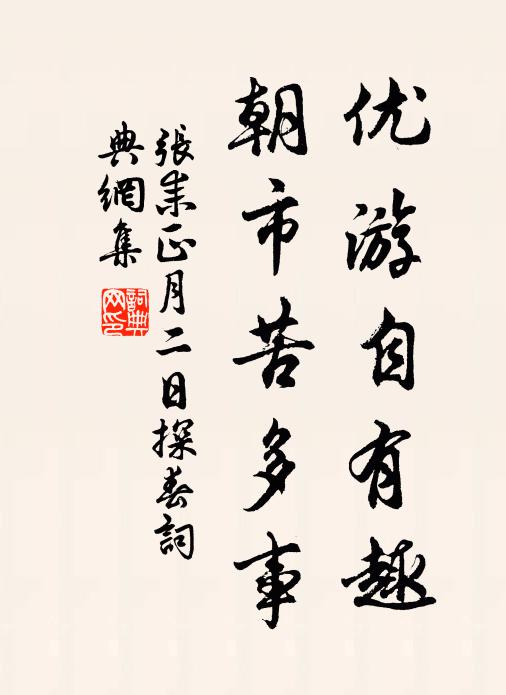 优游自有趣
朝市苦多事
張耒正月二日探春詞
典網集
詞典網印